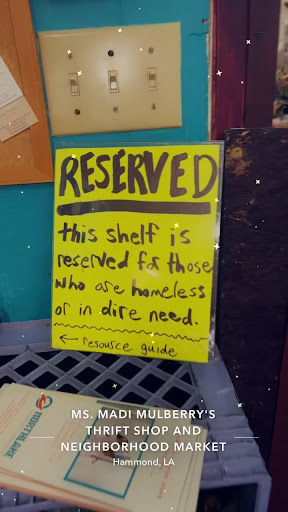 RESERVED
this shelf is
reserved for those
who are homeless
or in dire need.
← resource guide
MS. MADI MULBERRY'S
THRIFT SHOP AND
NEIGHBORHOOD MARKET
Hammond, LA